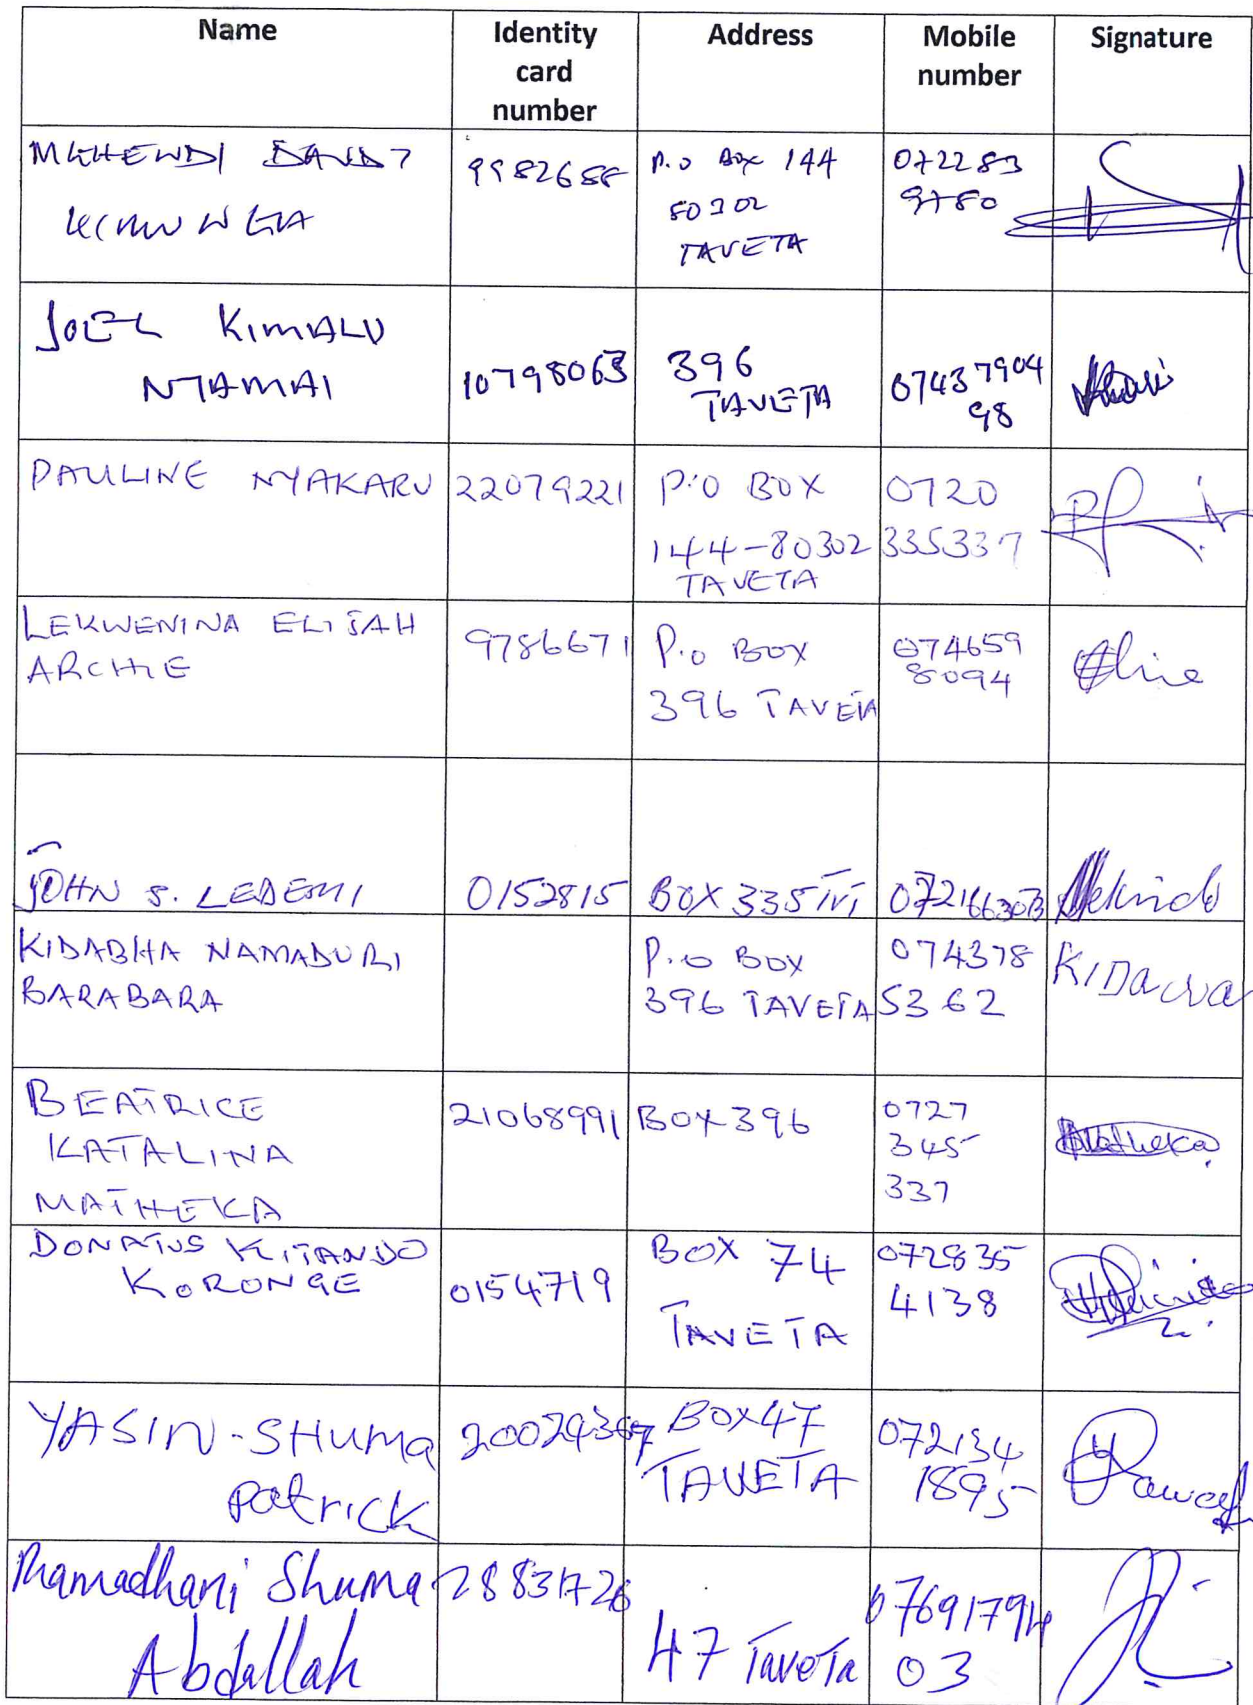 Name
Identity
card
number
Address
Mobile
number
Signature
MKHENDI
9982688
P.O Box 144
80302
TAVETA
072283
9780
JOEL KIMALU
NTAMAI
10798063
396
TAVETA
07437904
98
PAULINE NYAKARU
22079221
P.O BOX
144-80302
TAVETA
0720
335337
LEKWENINA ELIJAH
ARCHIE
9786671
P.O BOX
396 TAVETA
074659
8094
JOHN S. LEDEMI
0152815
BOX 335 TVT
0721663073
KIDABHA NAMADURI
BARABARA
P.O BOX
396 TAVETA
074378
5362
KIDacva
BEATRICE
KATALINA
MATHEKA
21068991
BOX 396
0727
345
337
Matheka
DONATUS KITANDO
KORONGE
0154719
BOX 74
TAVETA
072835
4138
YASIN-SHUMA
Patrick
20024367
BOX 47
TAVETA
072134
1895
Ramadhani Shuma
Abdallah
28831726
47 Taveta
07691794
03